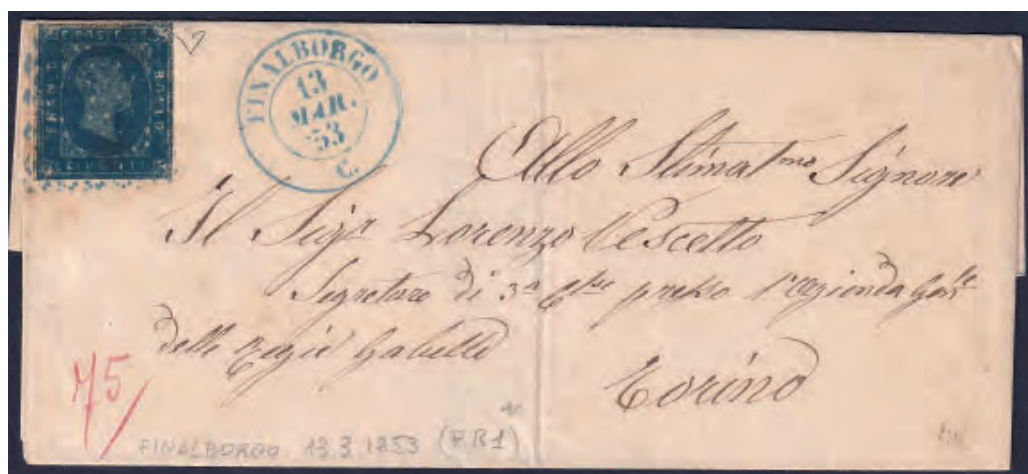 C. POSTE 20
FRANCO
BOLLO
C. VENTI
FINALBORGO
13
MAR.
53
C.
Allo Stimat.mo Signore
Il Sigr Lorenzo Pescetto
Segretaro di 3a Clse presso l'Azienda Genle
delle Regie Gabelle
Torino
75
FINALBORGO 13 3 1853 (P.R1)